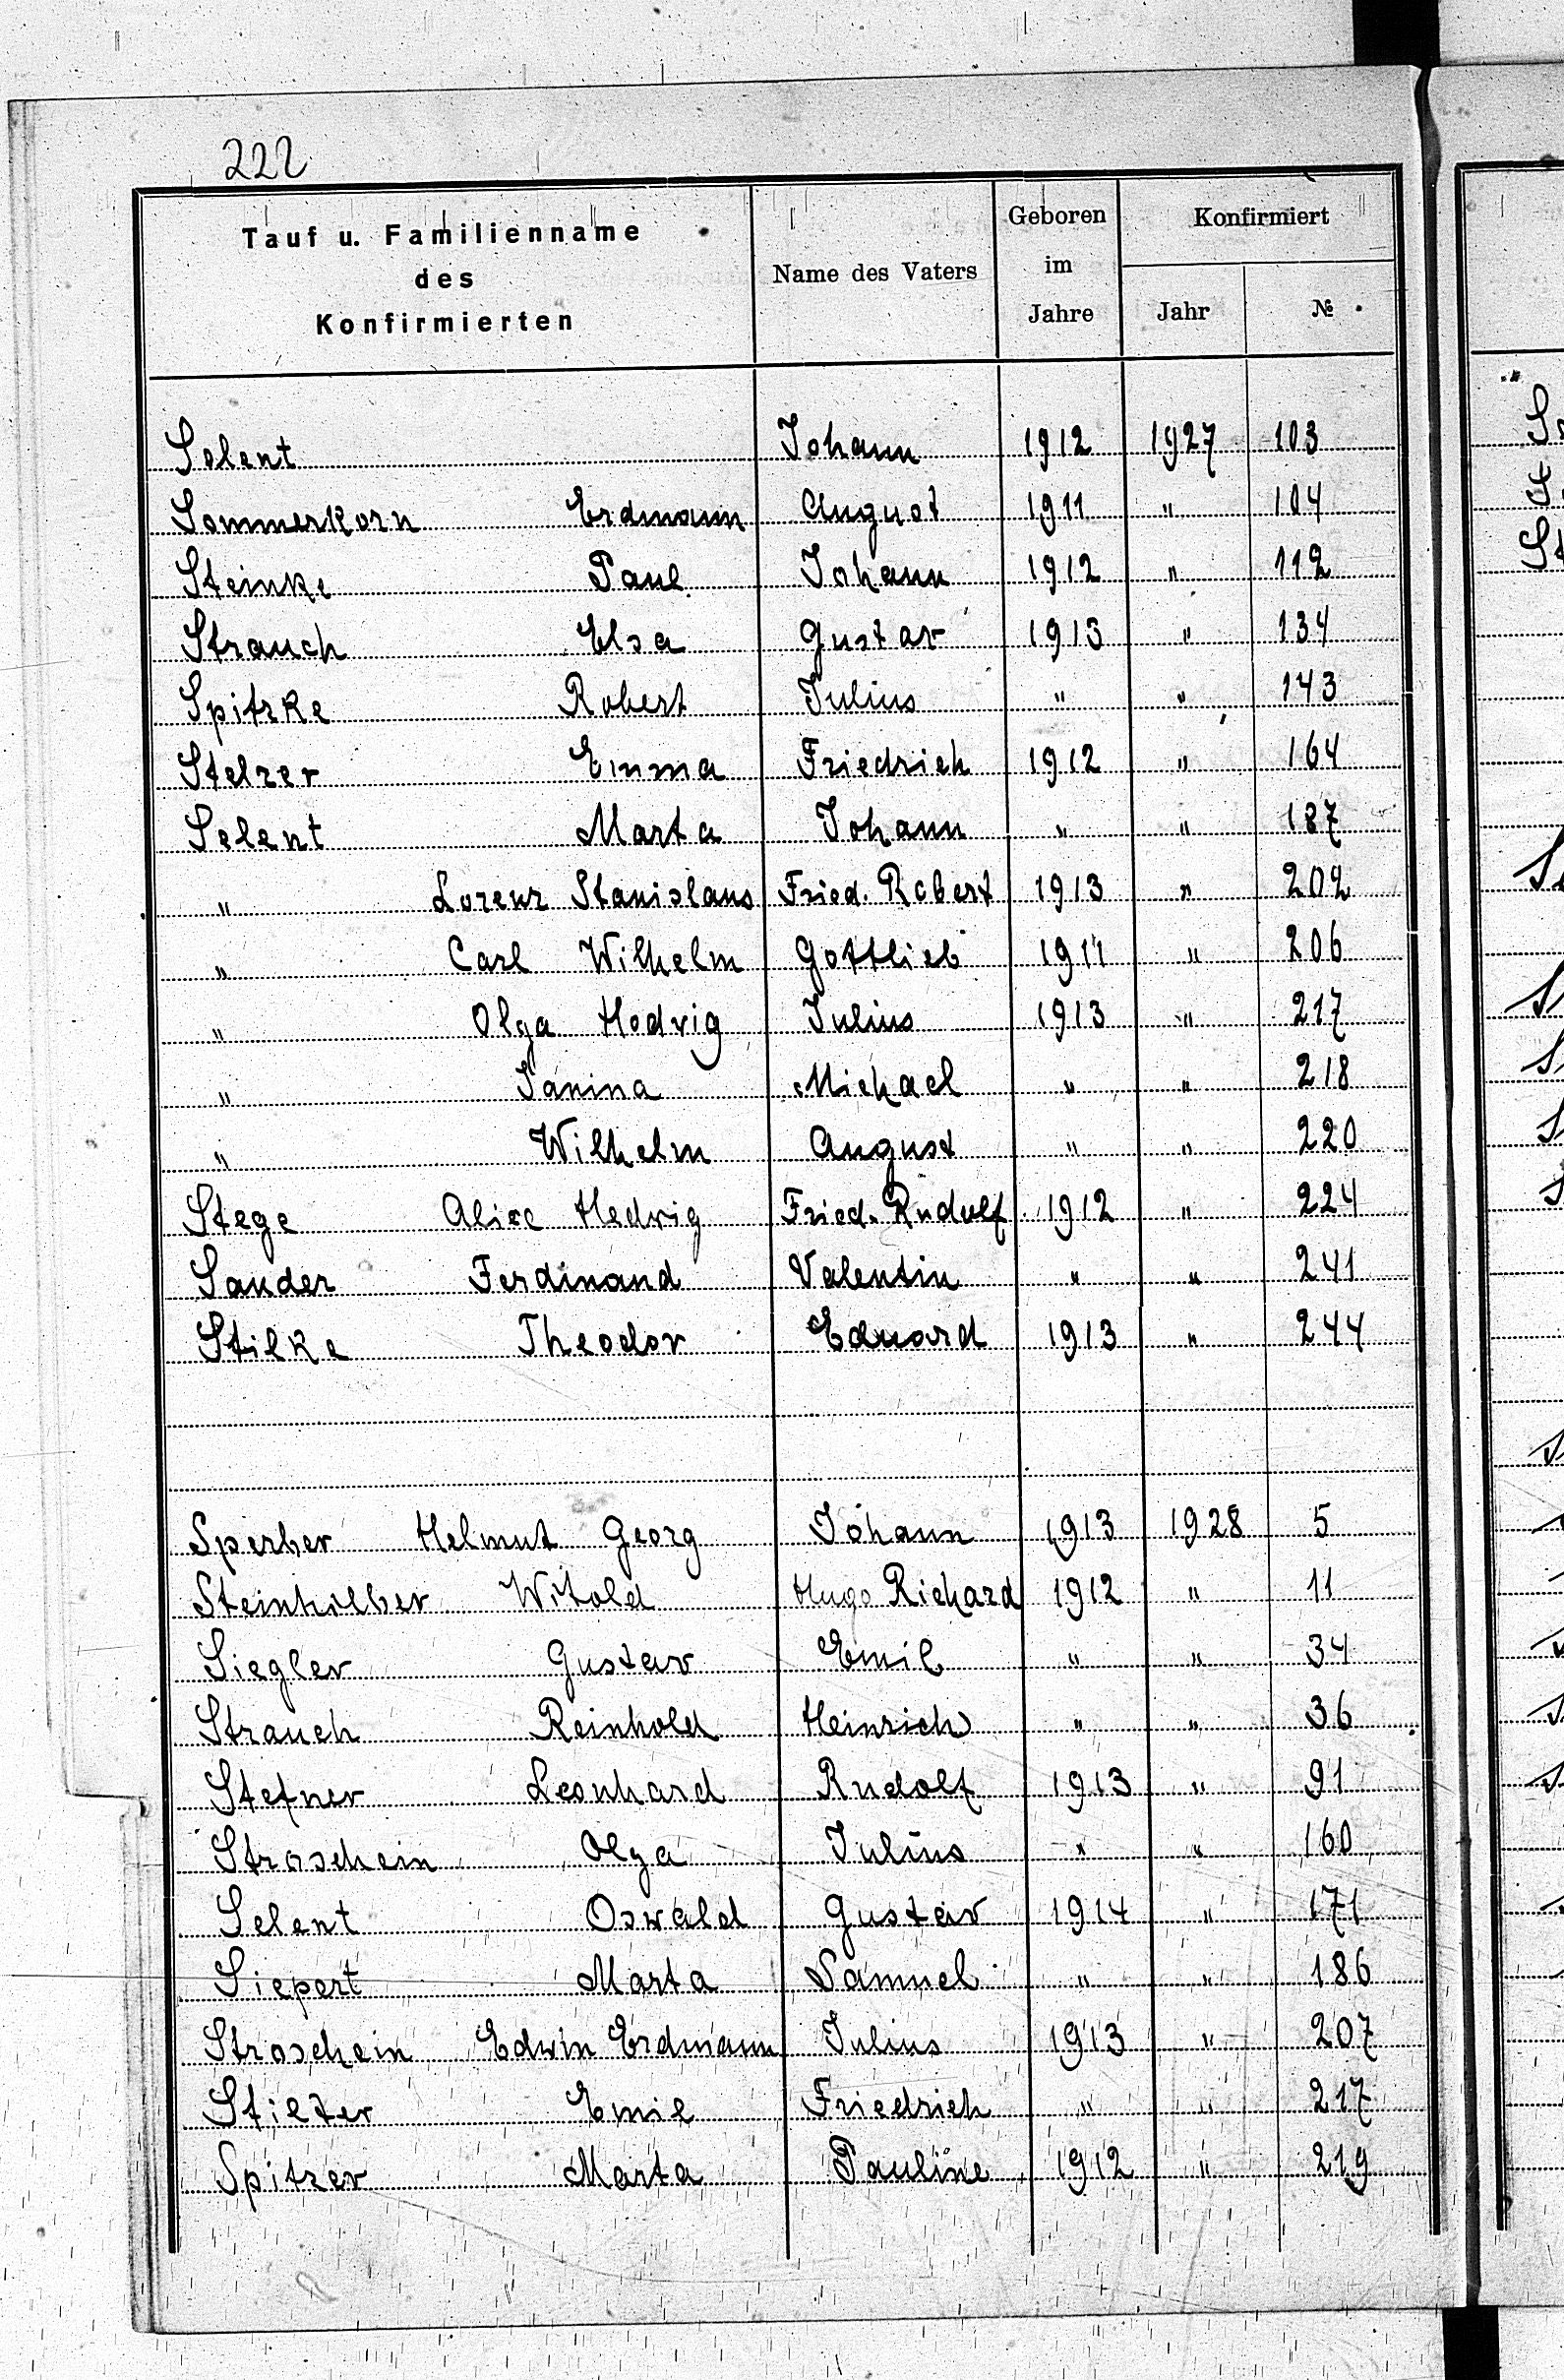 222
Tauf u. Familienname des Konfirmierten | Name des Vaters | Geboren im Jahre | Konfirmiert Jahr | №
Selent | Johann | 1912 | 1927 | 103
Sommerkorn Erdmann | August | 1911 | " | 104
Steinke Paul | Johann | 1912 | " | 112
Strauch Elsa | Gustav | 1913 | " | 134
Spitzke Robert | Julius | " | " | 143
Stelzer Emma | Friedrich | 1912 | " | 164
Selent Marta | Johann | " | " | 187
" Lorenz Stanislaus | Fried. Robert | 1913 | " | 202
" Carl Wilhelm | Gottlieb | 1911 | " | 206
" Olga Hedwig | Julius | 1913 | " | 217
" Janina | Michael | " | " | 218
" Wilhelm | August | " | " | 220
Stege Alice Hedwig | Fried. Rudolf | 1912 | " | 224
Sander Ferdinand | Valentin | " | " | 241
Stilke Theodor | Eduard | 1913 | " | 244
Sperber Helmut Georg | Johann | 1913 | 1928 | 5
Steinhilber Witold | Hugo Richard | 1912 | " | 11
Siegler Gustav | Emil | " | " | 34
Strauch Reinhold | Heinrich | " | " | 36
Stefner Leonhard | Rudolf | 1913 | " | 91
Stroschein Olga | Julius | " | " | 160
Selent Oswald | Gustav | 1914 | " | 171
Siepert Marta | Samuel | " | " | 186
Stroschein Edwin Erdmann | Julius | 1913 | " | 207
Stilzer Emil | Friedrich | " | " | 217
Spitzer Marta | Pauline | 1912 | " | 219